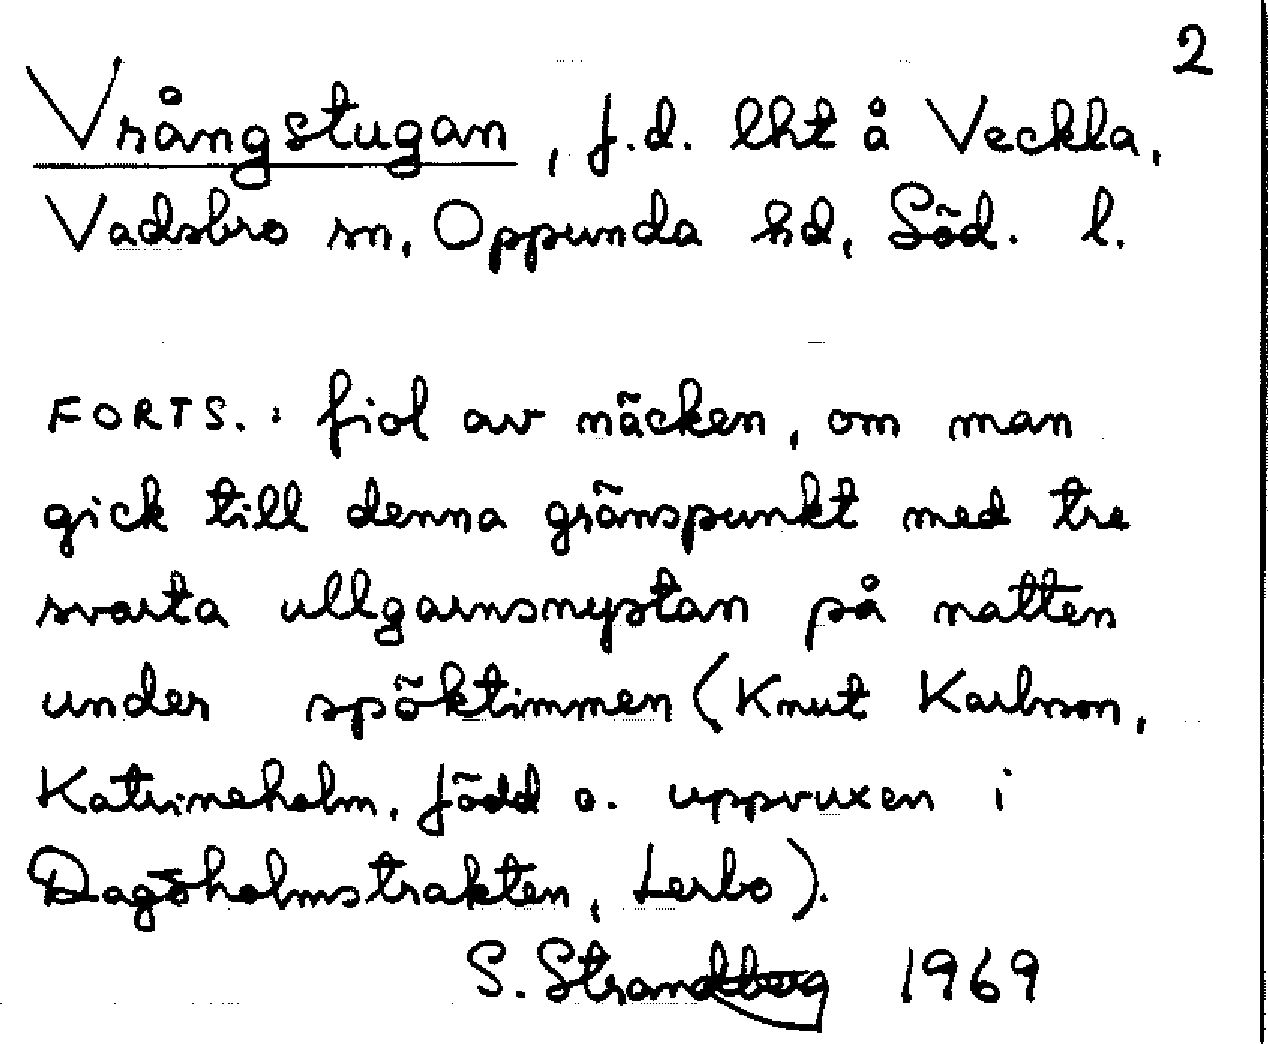 2
Vrångstugan, f.d. lht å Veckla,
Vadsbro sn, Oppunda hd, Söd. l.
FORTS.: fiol av näcken, om man
gick till denna gränspunkt med tre
svarta ullgarnsnystan på natten
under spöktimmen (Knut Karlsson,
Katrineholm, född o. uppvuxen i
Dagöholmstrakten, Lerbo).
S. Strandberg 1969